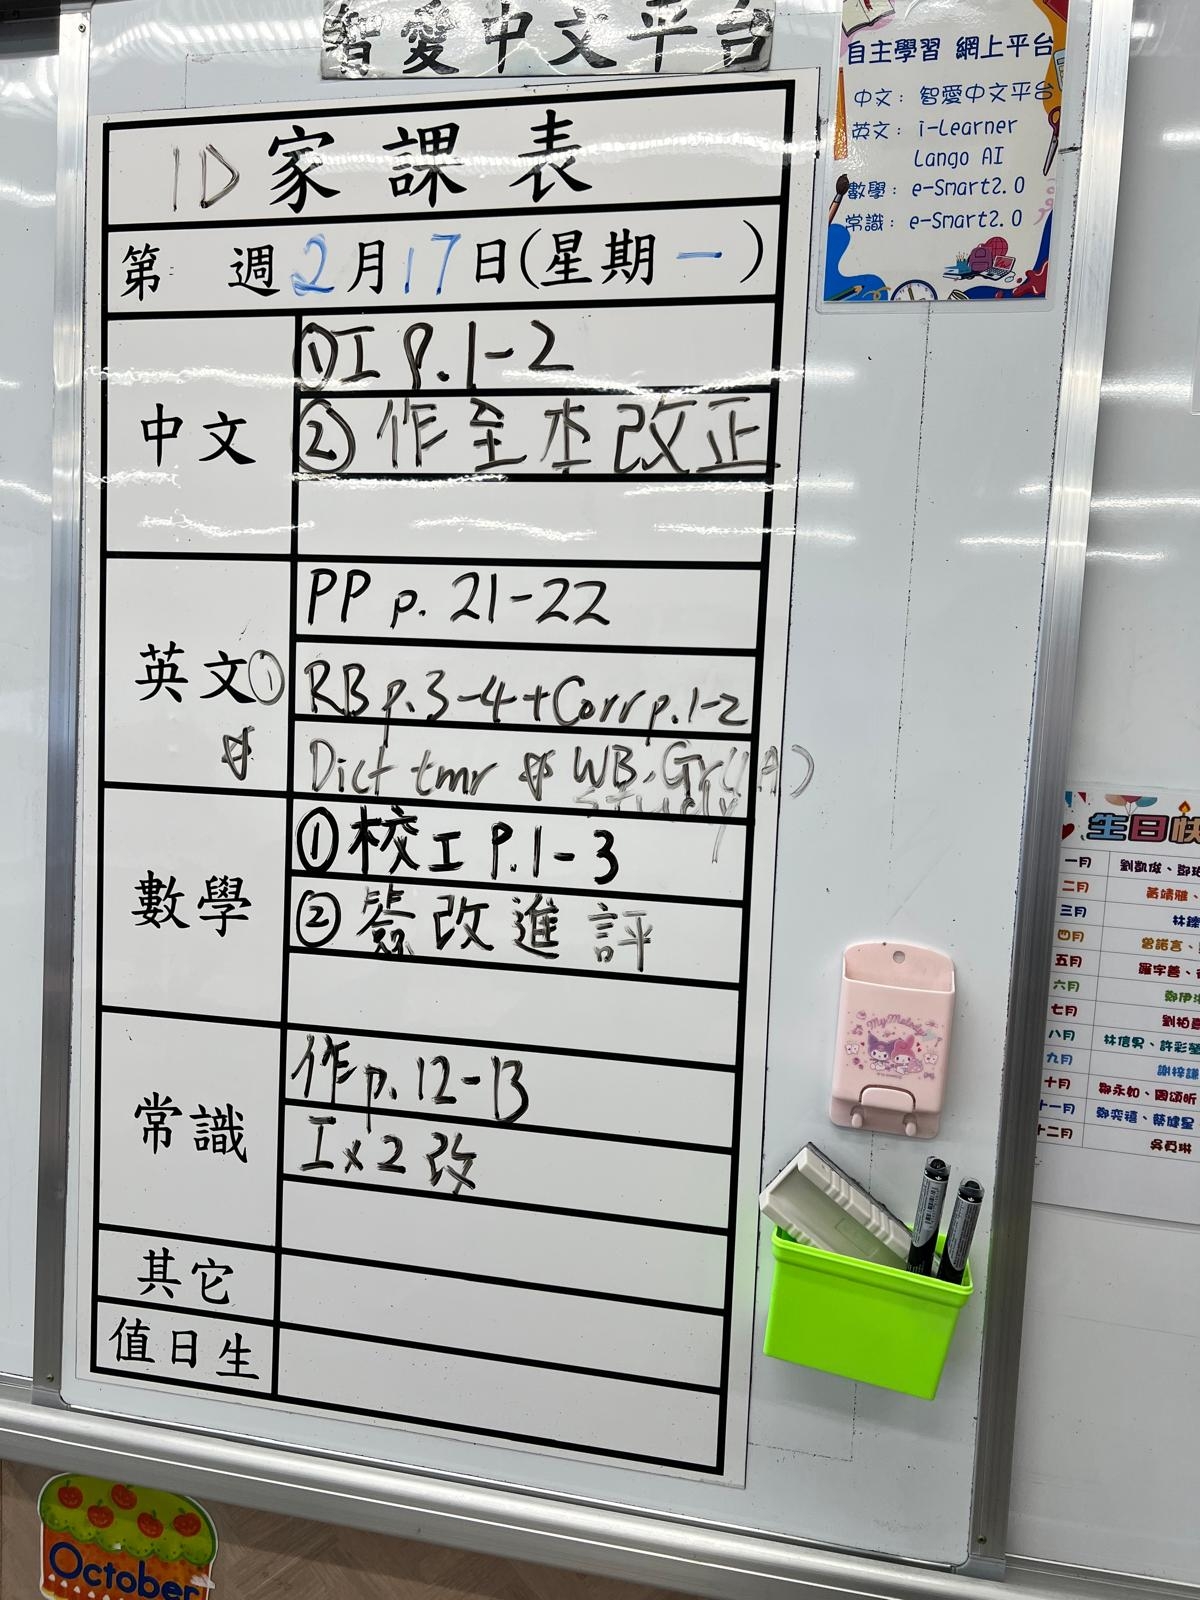 智愛中文平台
1D 家課表
第 週 2月17日(星期一)
中文
①工 P.1-2
②作至本改正
英文①
☆
PP p. 21-22
RB p.3-4+Corr p.1-2
Dict tmr ☆ WB, Gr(1A)
study
數學
①校工 P.1-3
②簽改進評
常識
作p.12-13
工x2改
其它
值日生
自主學習 網上平台
中文: 智愛中文平台
英文: i-Learner
Lango AI
數學: e-Smart2.0
常識: e-Smart2.0
My Melody
生日快
一月 劉凱俊、鄭
二月 黃靖雅、
三月 林
四月 曾諾言、
五月 羅字善、
六月 鄭伊
七月 劉柏
八月 林信男、許彩
九月 謝梓謙
十月 鄭永如、周頌昕
十一月 鄭奕禧、蔡健星
十二月 吳貝琳
October